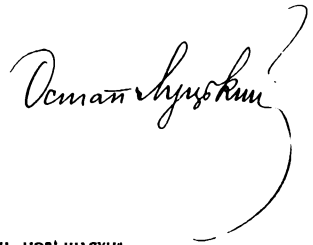 Остап Луцький